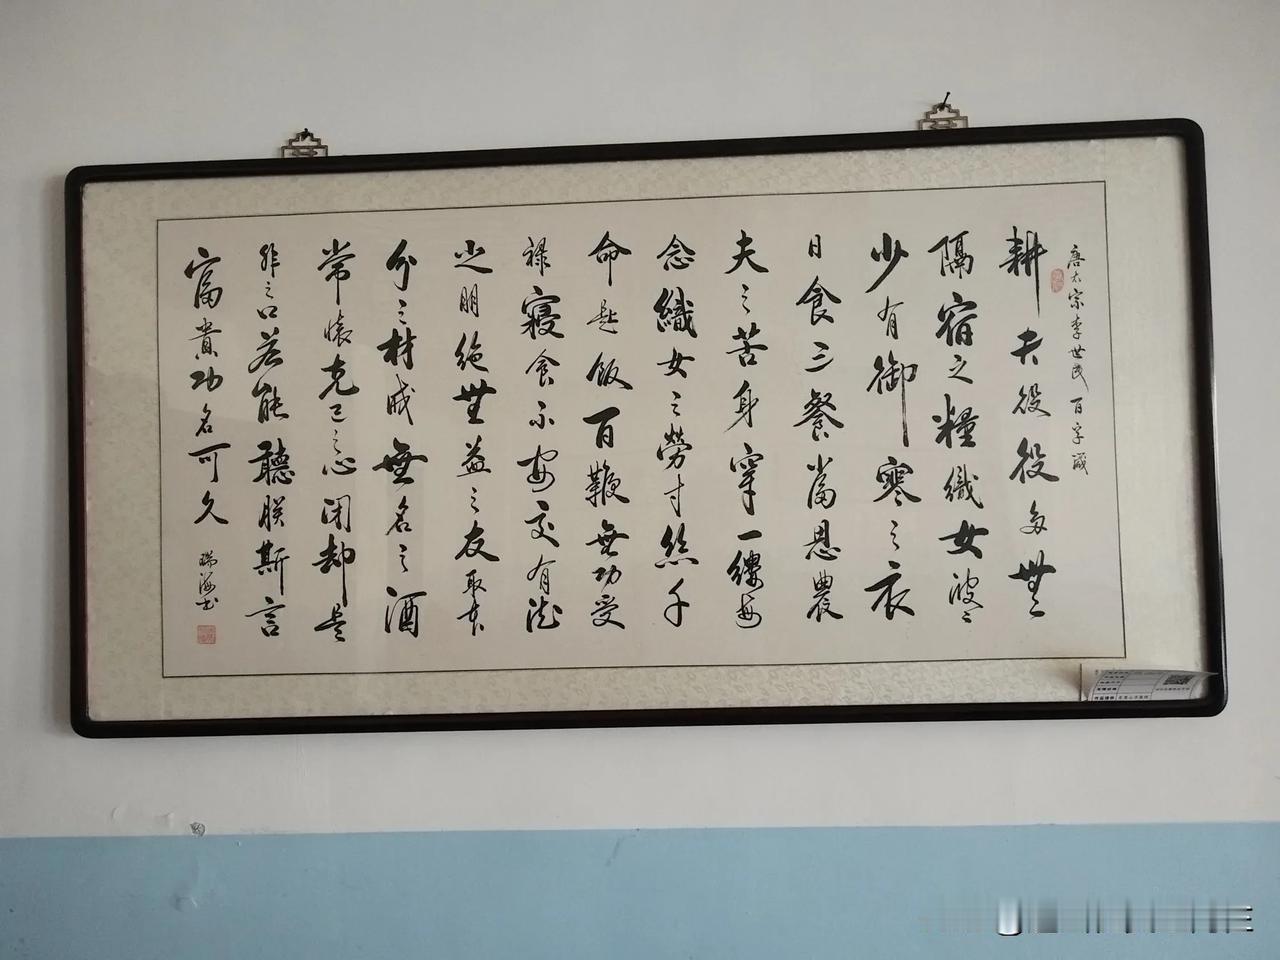 唐太宗李世民百字箴
耕夫役役多無
隔宿之糧織女波波
少有御寒之衣
日食三餐當思農
夫之苦身穿一縷每
念織女之勞寸絲千
命匙飯百鞭無功受
祿寢食不安交有德
之朋絕無益之友取本
分之材戒無名之酒
常懷克己之心閉卻是
非之口若能聽朕斯言
富貴功名可久
瑞海書